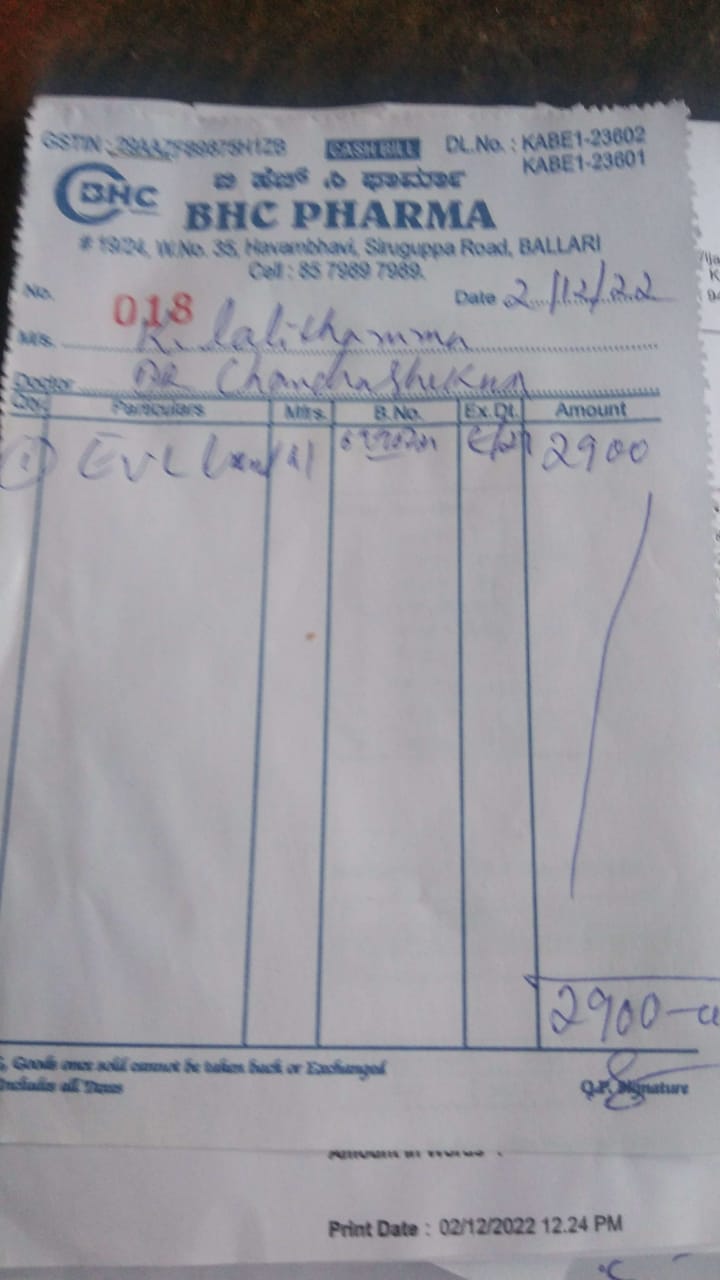 CASH BILL
DL.No. : KABE1-23602
KABE1-23601
BHC
ಬಿ ಹೆಚ್ ಸಿ ಫಾರ್ಮಾ
BHC PHARMA
# 19/24, W.No. 35, Havambhavi, Siruguppa Road, BALLARI
Cell : 85 7989 7989.
No. 018
Date 2/12/22
M/s. K. Lalithamma
Doctor DR Chandrashekar
Qty. Particulars Mfrs. B.No. Ex.Dt. Amount
1 2900
2900
Goods once sold cannot be taken back or Exchanged
Includes all Taxes
Q.P. Signature
Amount in Words :
Print Date : 02/12/2022 12.24 PM